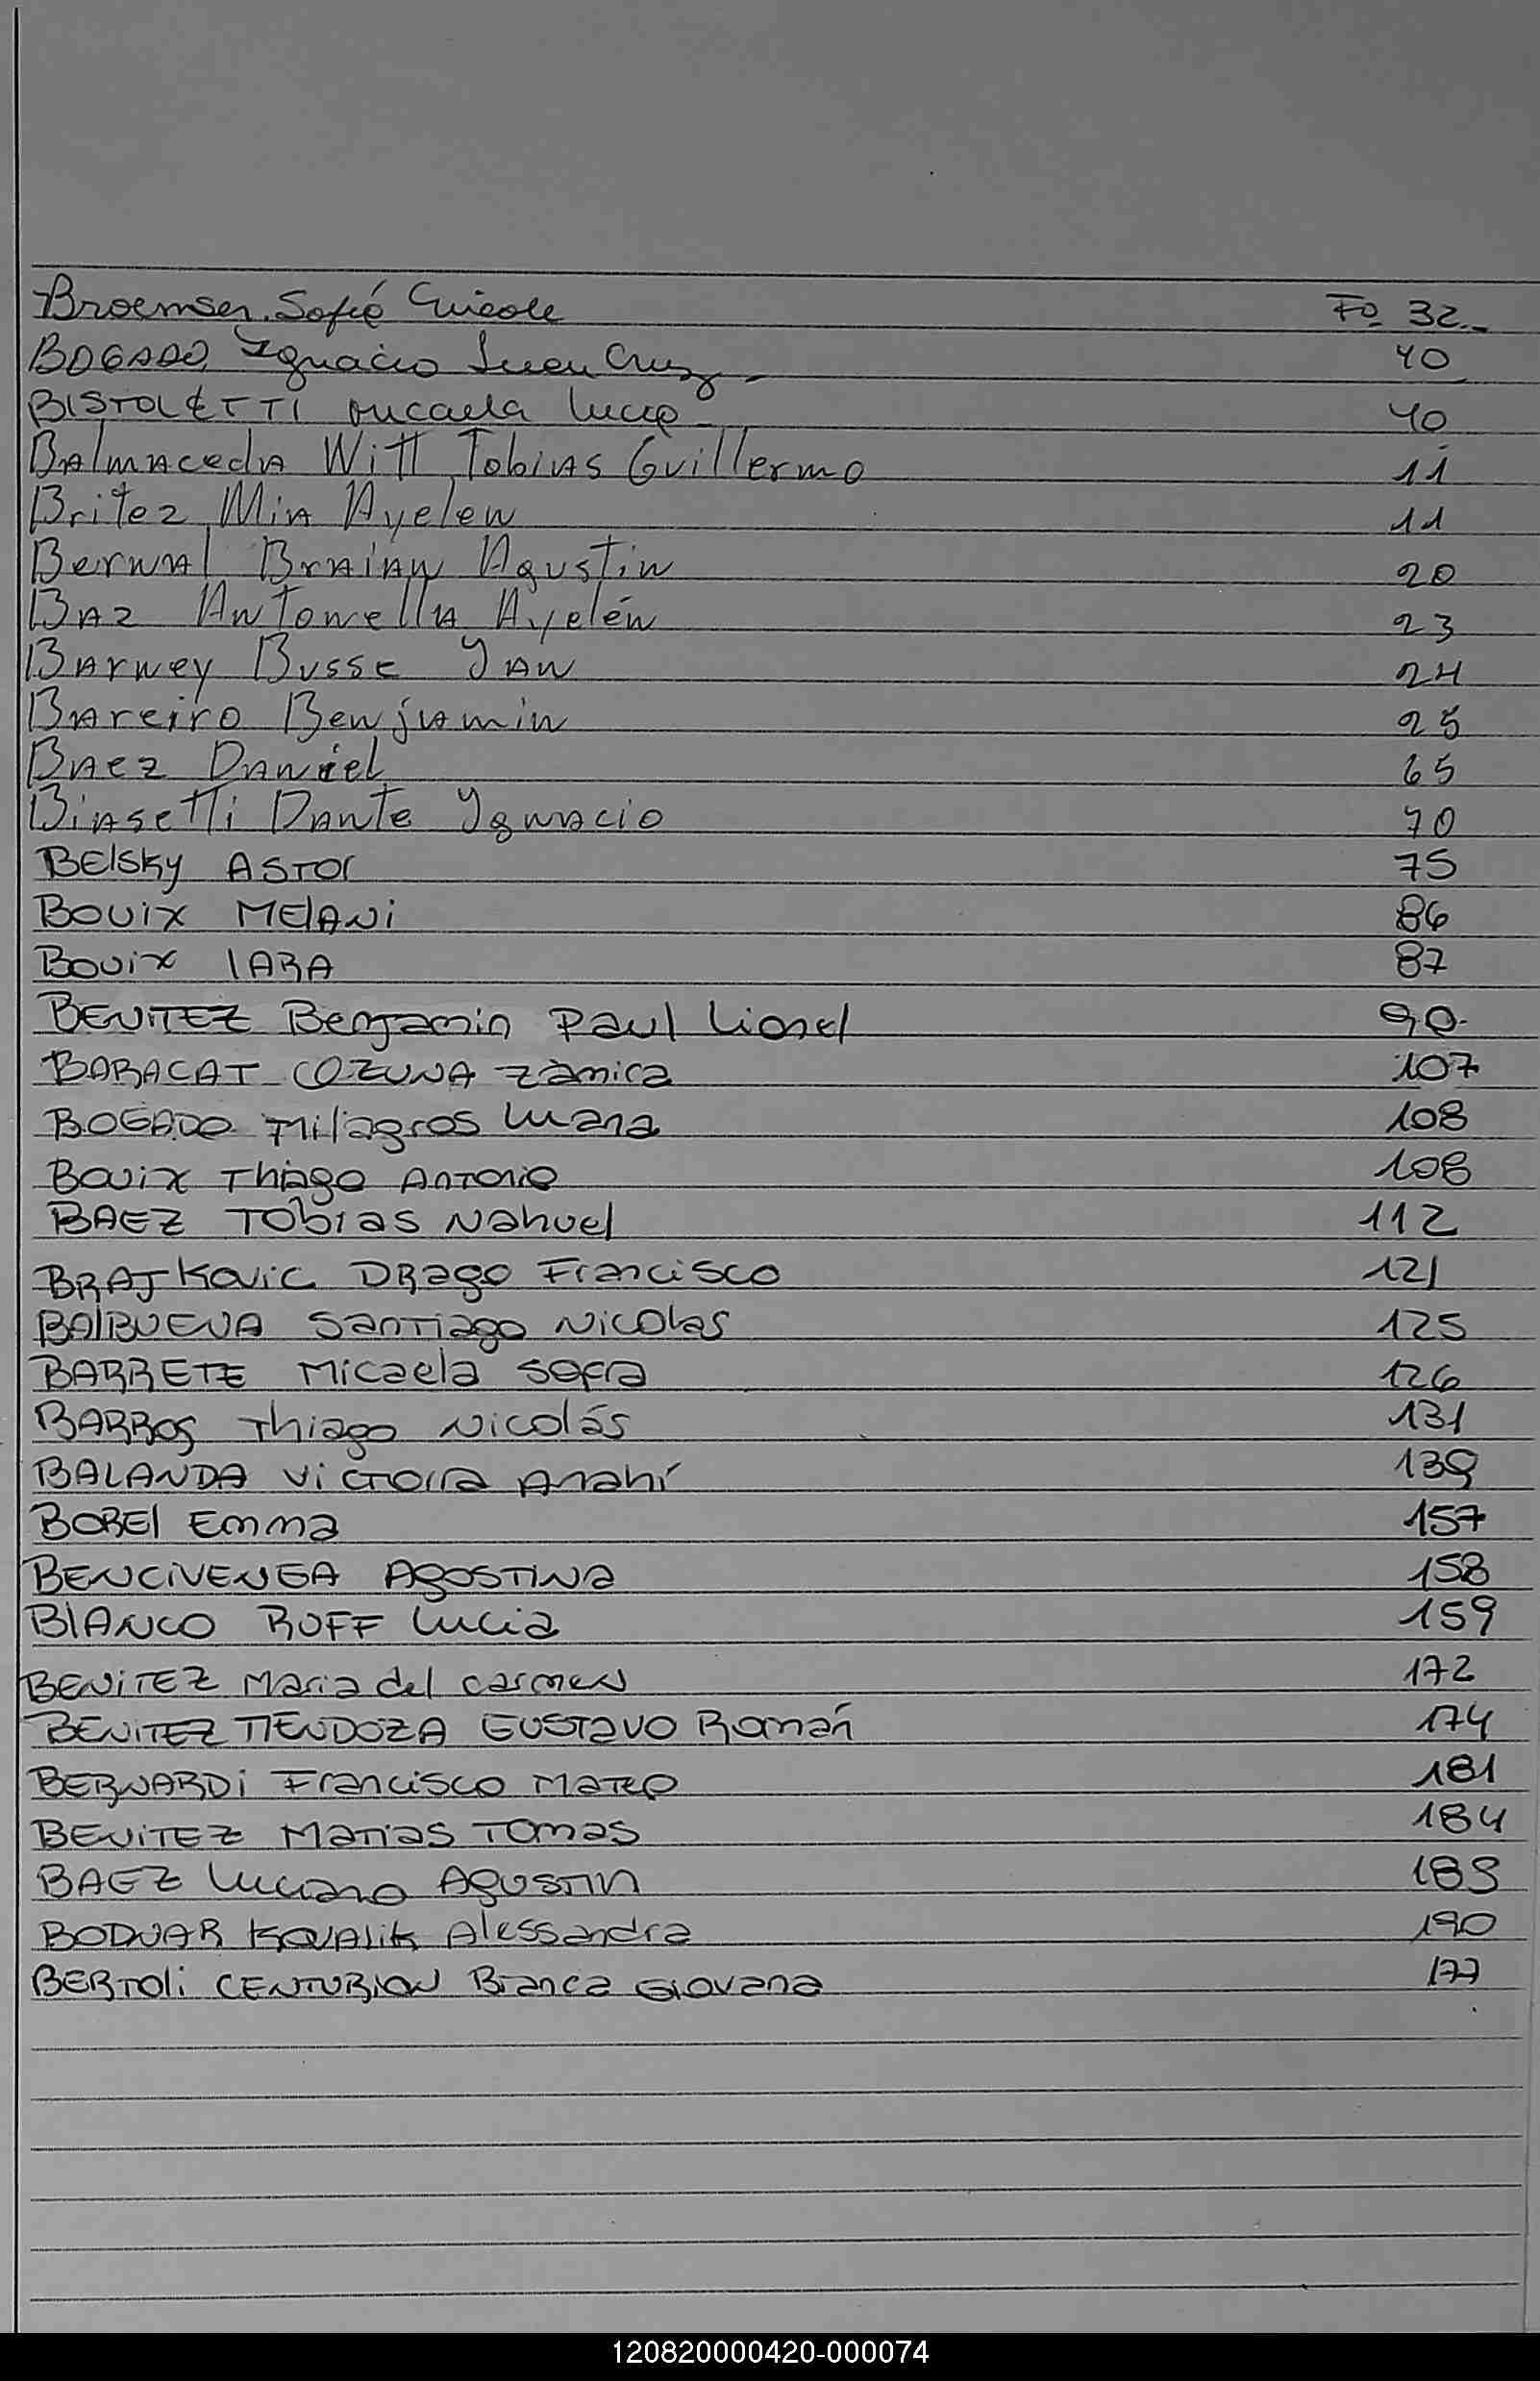 Broemser, Sofié Nicole Fo. 32.-
BOGADO, Ignacio Juan Cruz.- 40
BISTOLETTI Micaela Lucía 40
Balmaceda Witt Tobias Guillermo 11
Britez Mia Ayelen 11
Bernal Braian Agustin 20
Baz Antonella Ayelén 23
Barney Busse Ian 24
Bareiro Benjamin 25
Baez Daniel 65
Biasetti Dante Ygnacio 70
BElSky ASTOr 75
BOUix MElANi 86
BOUix IARA 87
BENITEZ Benjamin Paul Lionel 90.
BARACAT COZUNA Zàmira 107
BOGADO Milagros Luana 108
BOUix Thiago Antonio 108
BAEZ Tobias Nahuel 112
BRAJKOVIC DRago Francisco 121
BAlBUENA Santiago Nicolas 125
BARRETE Micaela Sofia 126
BARROS Thiago Nicolás 131
BALANDA Victoria Anahí 139
BOREl Emma 157
BENCIVENGA AgOSTINa 158
BlANCO RUFF Lucia 159
BENITEZ Maria del carmen 172
BENITEZ MENDOZA GUSTAVO Román 174
BERNARDI Francisco Mateo 181
BENITEZ Matias Tomas 184
BAEZ Luciano AgUSTIN 189
BODNAR KOVALIK Alessandra 190
BERTOli CENTURION Bianca Giovana 177
120820000420-000074